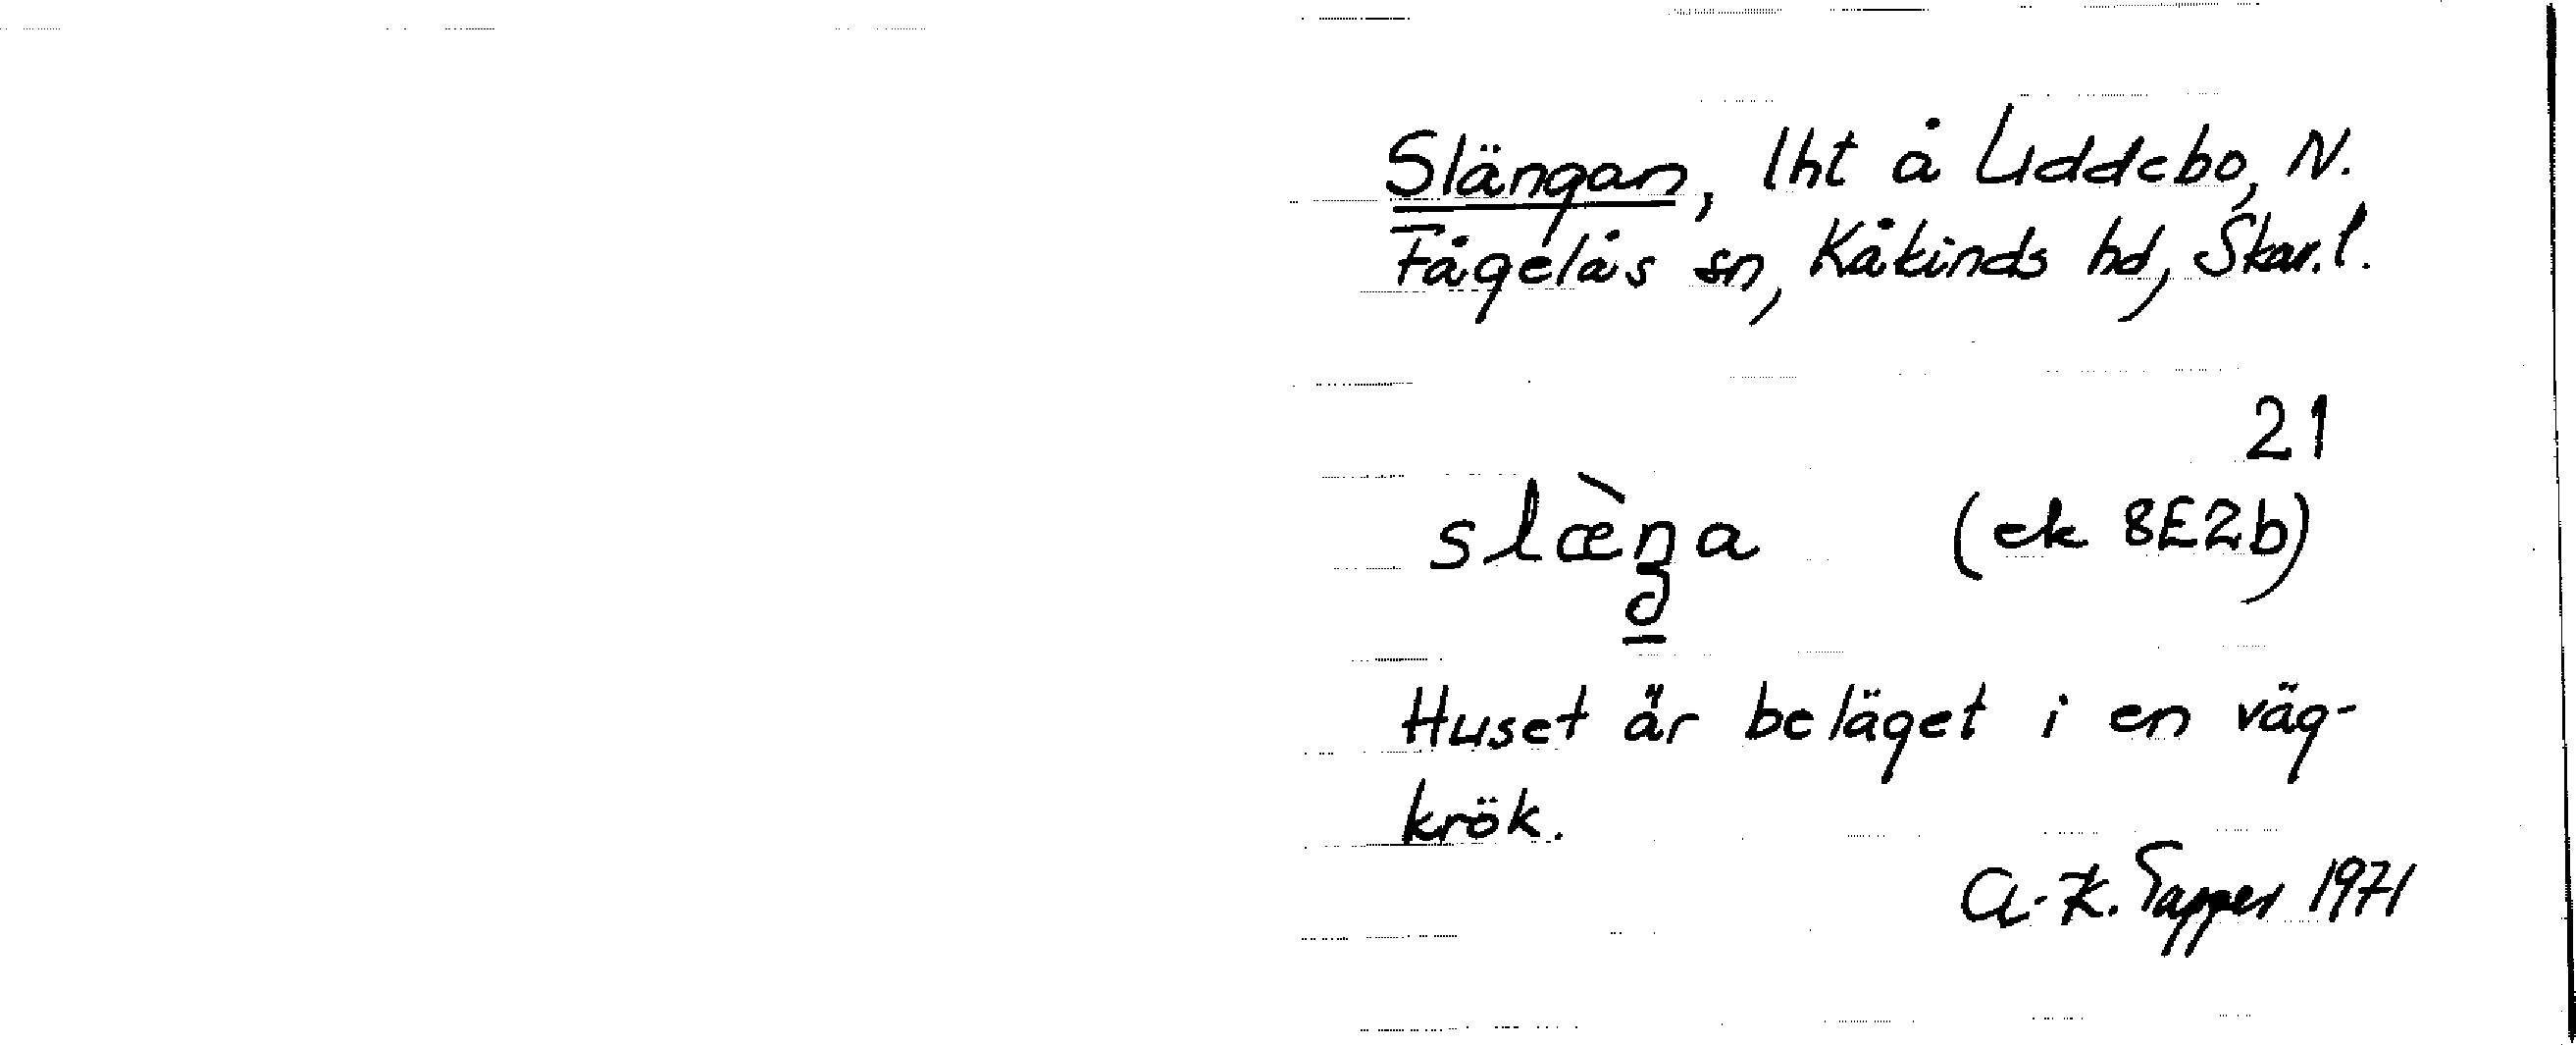 Slängan, lht å Uddebo, N.
Fågelås sn, Kåkinds hd, Skar.l.
21
slæ̀ŋa (ek 8E2b)
Huset är beläget i en väg-
krök.
A-K. Tapper 1971